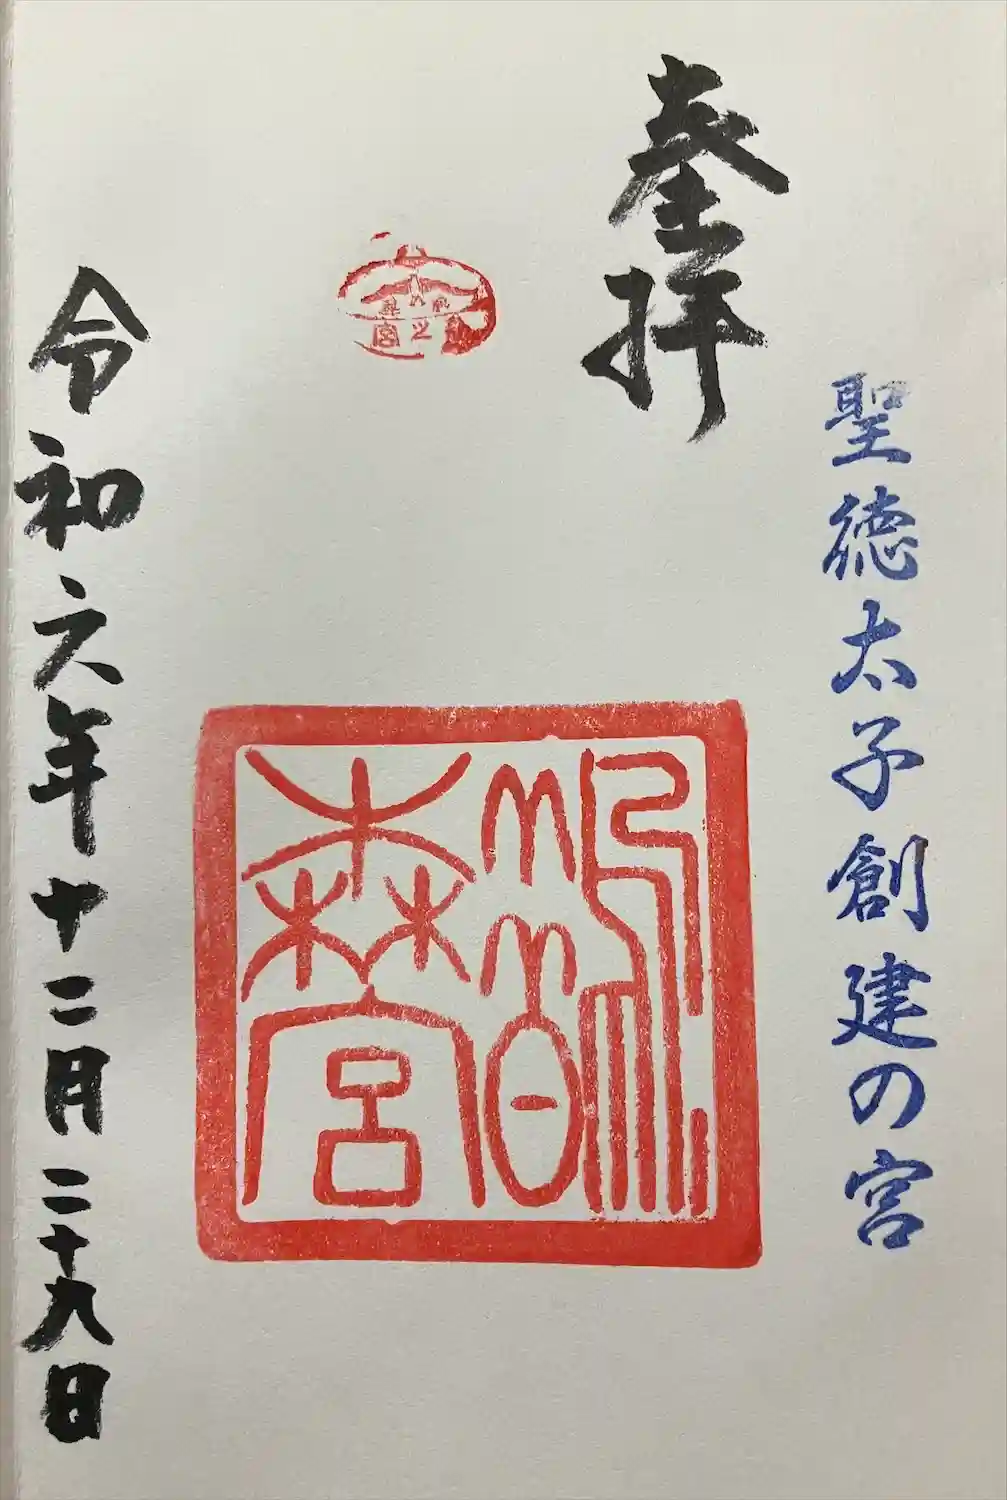 聖徳太子創建の宮
奉拝
鵲森宮
令和六年十二月二十九日